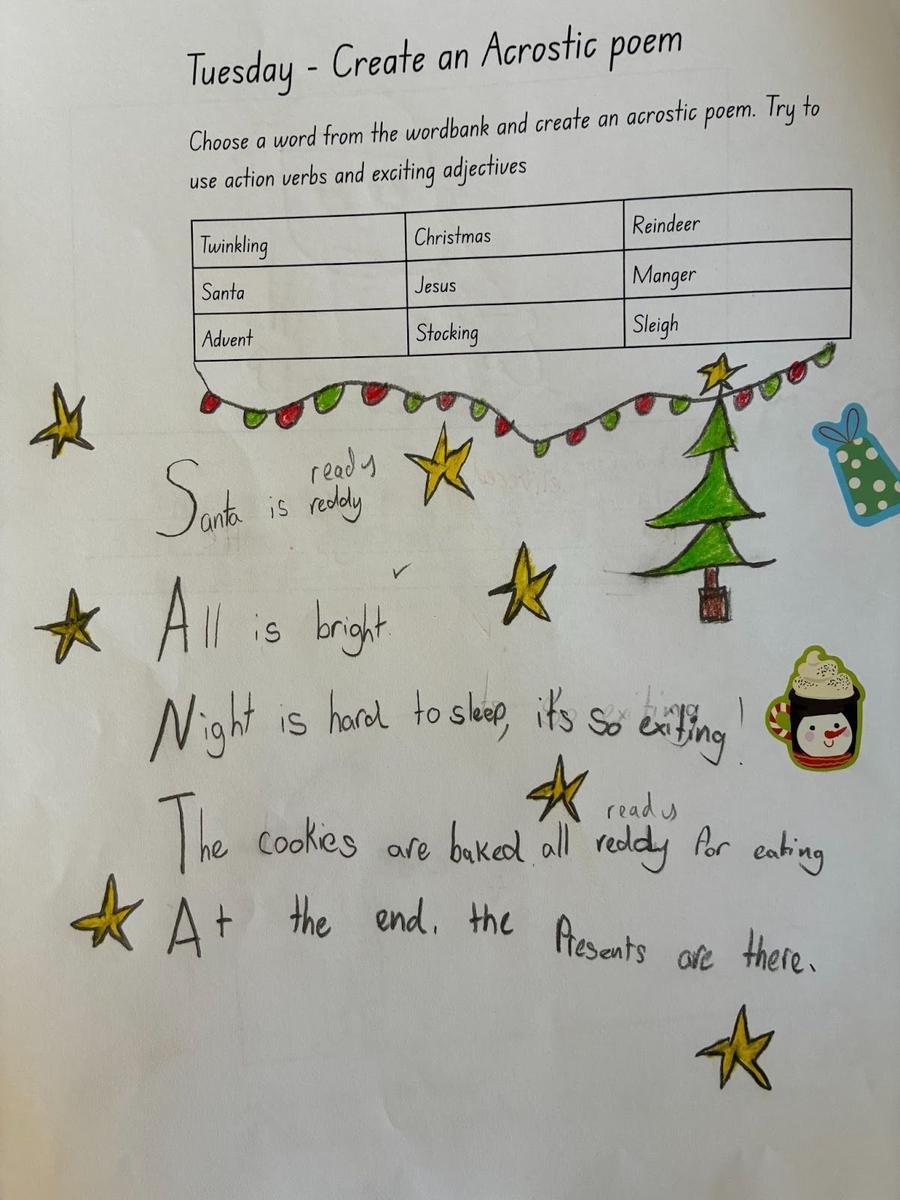 Tuesday - Create an Acrostic poem
Choose a word from the wordbank and create an acrostic poem. Try to
use action verbs and exciting adjectives
Twinkling Christmas Reindeer
Santa Jesus Manger
Advent Stocking Sleigh
ready
Santa is reddy
All is bright.
Night is hard to sleep, it's so exiting!
ready
The cookies are baked all reddy for eating
At the end. the Presents are there.